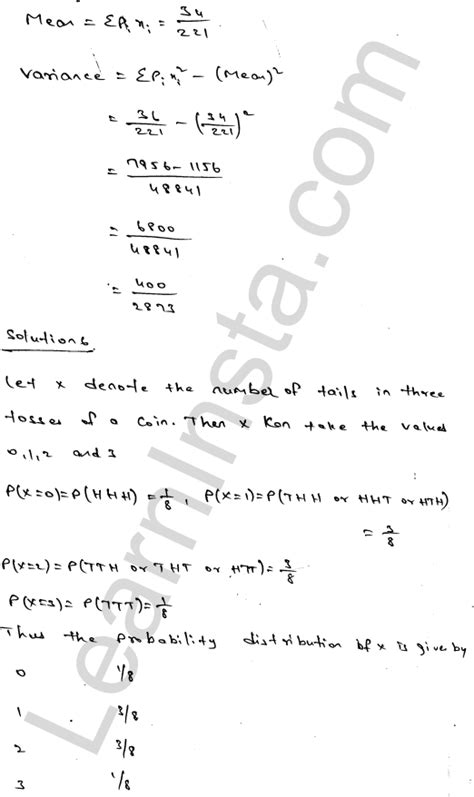 Mean = ΣPᵢ xᵢ = 34/221
Variance = ΣPᵢ xᵢ² - (Mean)²
= 36/221 - (34/221)²
= 7956-1156/48841
= 6800/48841
= 400/2873
Solution 6
Let x denote the number of tails in three
tosses of a coin. Then x Kan take the values
0,1,2 and 3
P(x=0)=P(HHH) = 1/8, P(x=1)=P(THH or HHT or HTH)
= 3/8
P(x=2)=P(TTH or THT or HTT)= 3/8
P(x=3)= P(TTT)= 1/8
Thus the probability distribution of x is give by
0 1/8
1 3/8
2 3/8
3 1/8
LearnInsta.com